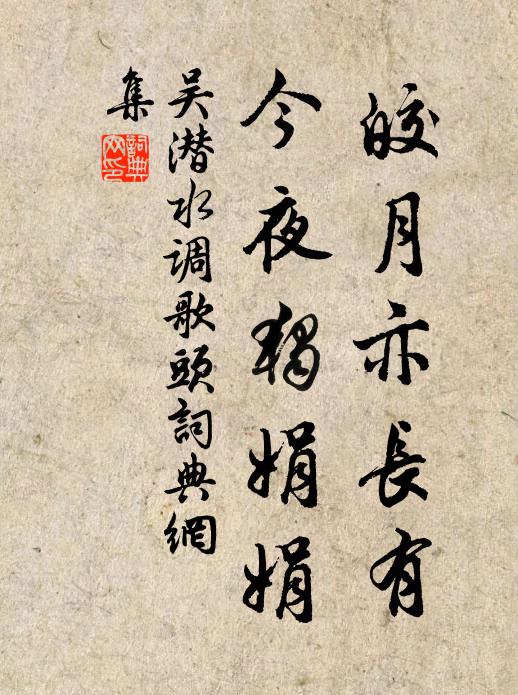 皎月亦長有
今夜獨娟娟
吴潜水调歌頭詞典網
集
詞典網印